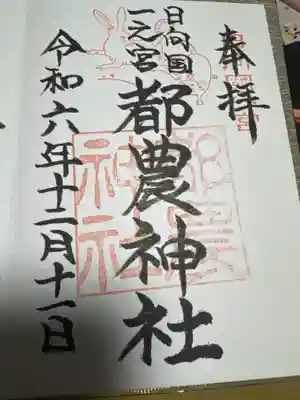 奉拝
日向国
一之宮
都農神社
令和六年十二月十一日
都農
神社